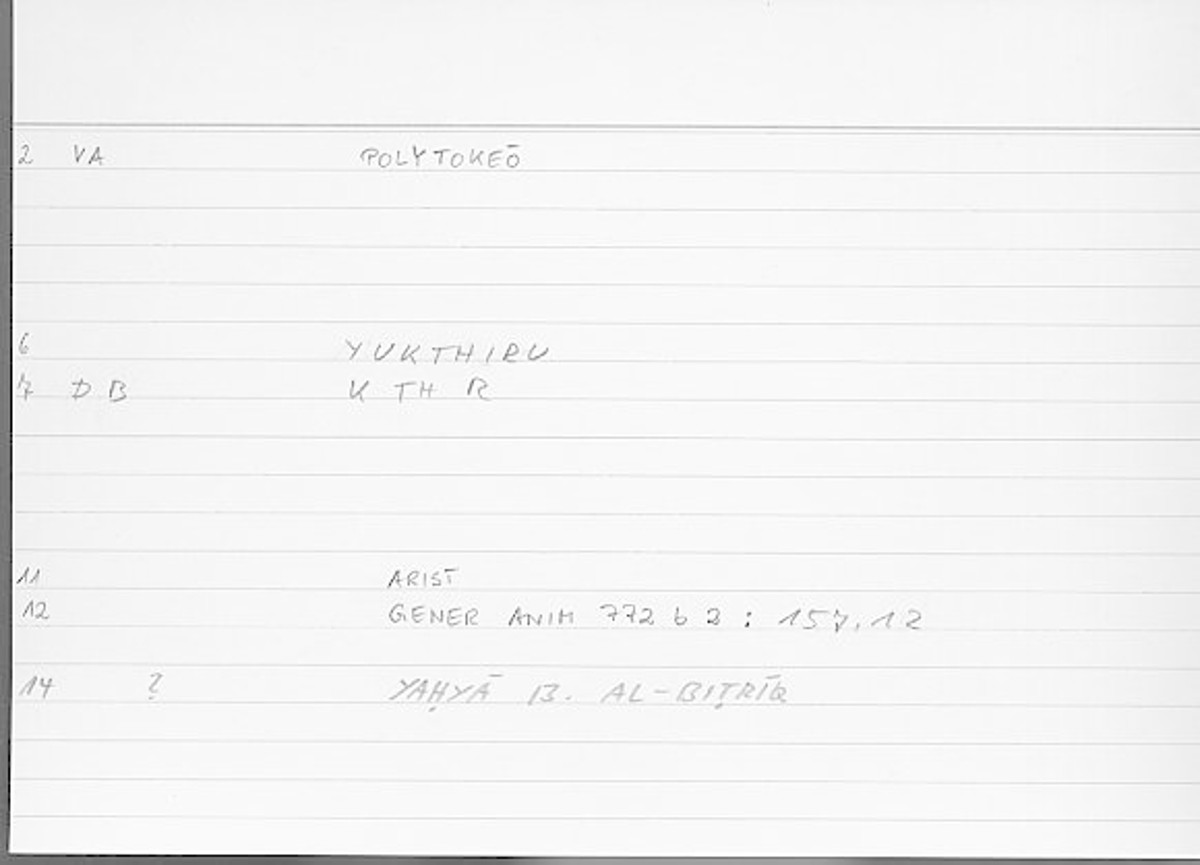 2 VA POLYTOKEŌ
6 YUKTHIRU
7 DB K TH R
11 ARIST
12 GENER ANIM 772 b 2 : 157,12
14 ? YAḤYĀ B. AL-BIṬRĪQ